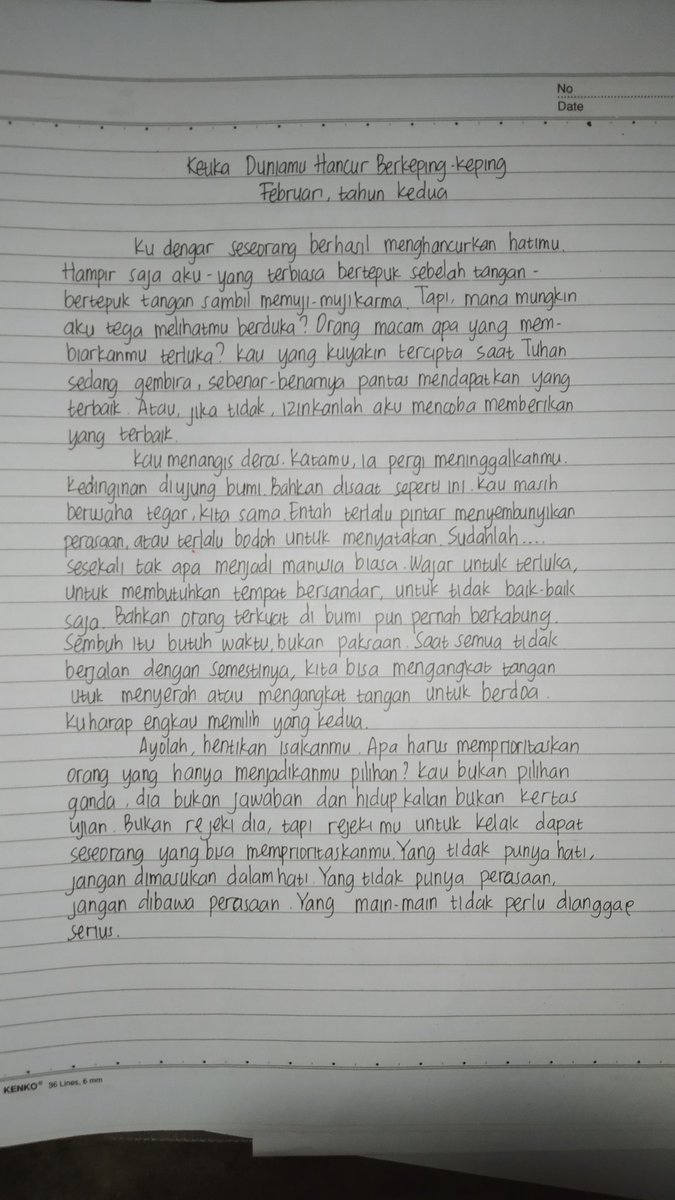 No
Date
Ketika Duniamu Hancur Berkeping-keping
Februari, tahun kedua
Ku dengar seseorang berhasil menghancurkan hatimu.
Hampir saja aku - yang terbiasa bertepuk sebelah tangan -
bertepuk tangan sambil memuji-muji karma. Tapi, mana mungkin
aku tega melihatmu berduka? Orang macam apa yang mem-
biarkanmu terluka? Kau yang kuyakin tercipta saat Tuhan
sedang gembira, sebenar-benarnya pantas mendapatkan yang
terbaik. Atau, jika tidak, izinkanlah aku mencoba memberikan
yang terbaik.
Kau menangis deras. Katamu, ia pergi meninggalkanmu.
Kedinginan diujung bumi. Bahkan disaat seperti ini. Kau masih
berwaha tegar, kita sama. Entah terlalu pintar menyembunyikan
perasaan, atau terlalu bodoh untuk menyatakan. Sudahlah....
Sesekali tak apa menjadi manusia biasa. Wajar untuk terluka,
untuk membutuhkan tempat bersandar, untuk tidak baik-baik
saja. Bahkan orang terkuat di bumi pun pernah berkabung.
Sembuh itu butuh waktu, bukan paksaan. Saat semua tidak
berjalan dengan semestinya, kita bisa mengangkat tangan
utuk menyerah atau mengangkat tangan untuk berdoa.
Kuharap engkau memilih yang kedua.
Ayolah, hentikan isakanmu. Apa harus memprioritaskan
orang yang hanya menjadikanmu pilihan? Kau bukan pilihan
ganda, dia bukan jawaban dan hidup kalian bukan kertas
ujian. Bukan rejeki dia, tapi rejeki mu untuk kelak dapat
seseorang yang bisa memprioritaskanmu. Yang tidak punya hati,
jangan dimasukan dalam hati. Yang tidak punya perasaan,
jangan dibawa perasaan. Yang main-main tidak perlu dianggap
serius.
KENKO® 36 Lines, 6 mm